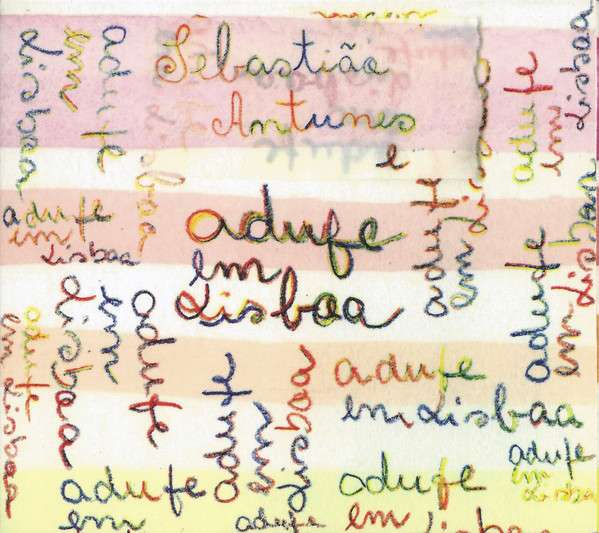 Sebastião
Antunes
e
adufe
em
Lisboa
adufe
em
Lisboa
adufe
em
Lisboa
adufe
em
Lisboa
adufe
em
Lisboa
adufe
em
Lisboa
adufe
em
Lisboa
adufe
em
Lisboa
adufe
em
Lisboa
adufe
em
Lisboa
adufe
em Lisboa
adufe
em
Lisboa
adufe
em
adufe
adufe
em Lisboa